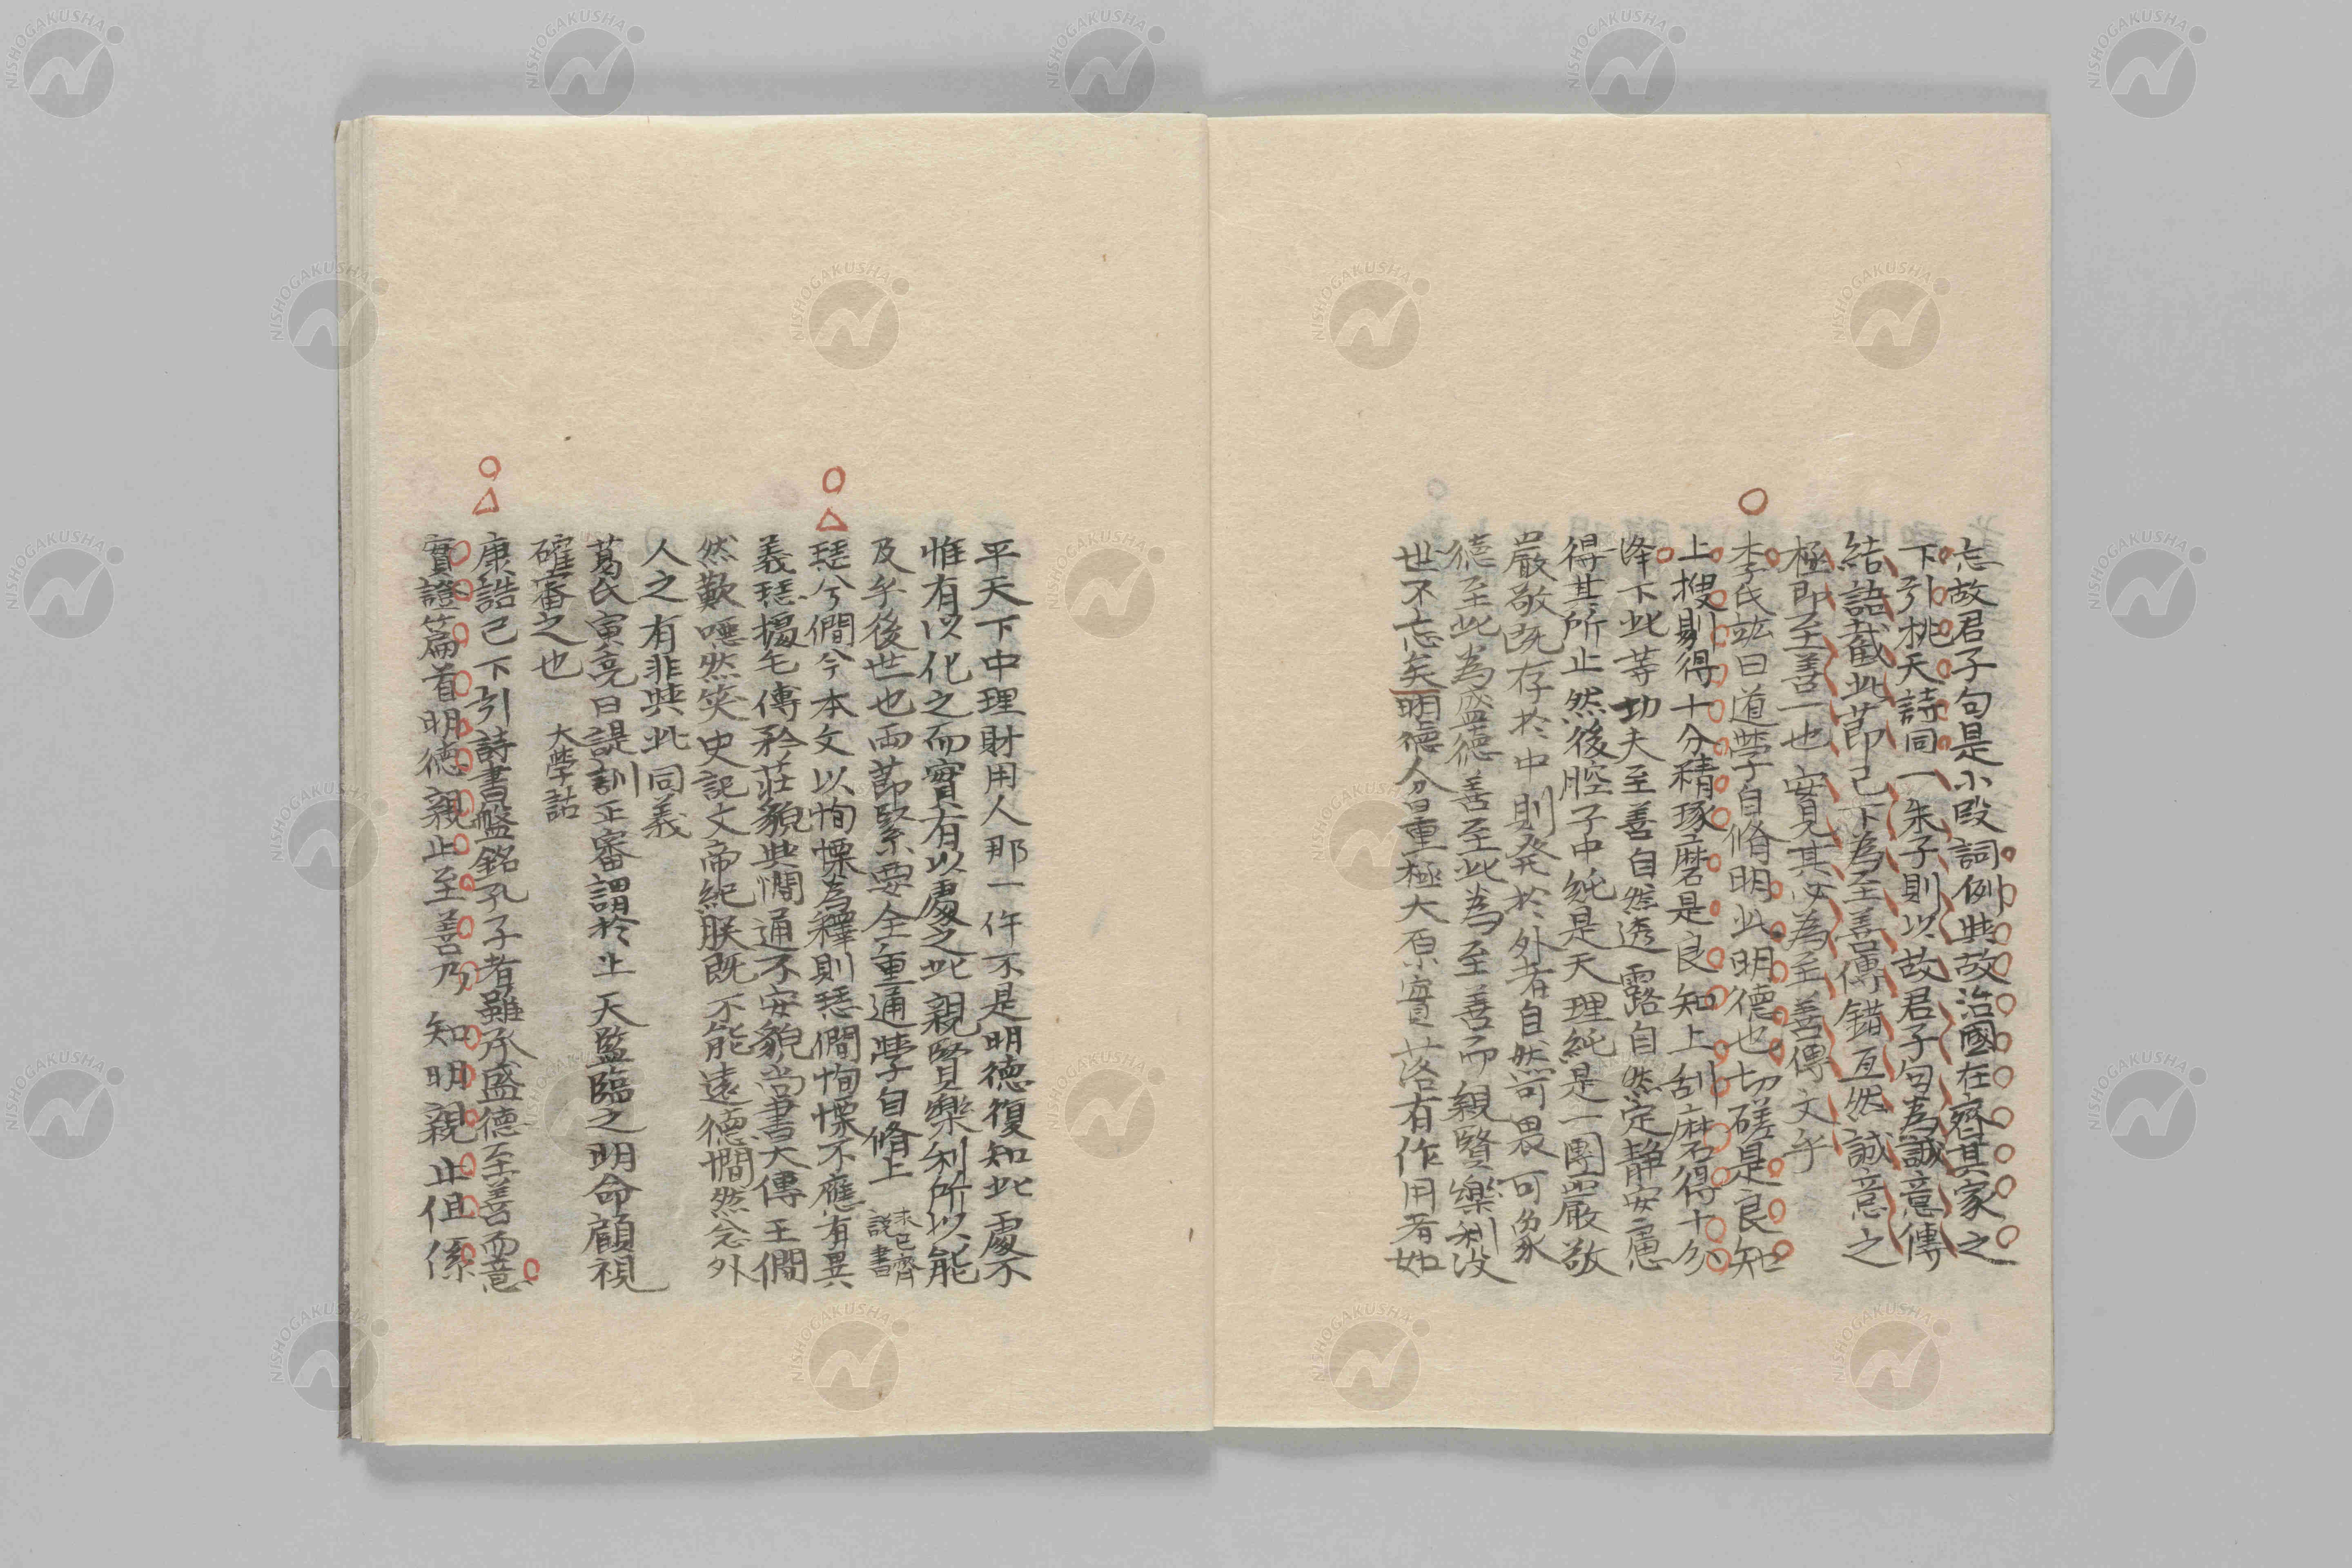 忘故君子句是小段詞例與故治國在齊其家之
下引桃夭詩同一朱子則以故君子句為誠意傳
結語截此節已下為至善傳錯亙然誠意之
極即至善一也安見其必為至善傳文乎
李氏竑曰道學自脩明此明德也切磋是良知
上搜剔得十分精琢磨是良知上刮磨得十分
淨下此等功夫至善自然透露自然定靜安慮
得其所止然後腔子中純是天理純是一團嚴敬
嚴敬既存於中則發於外者自然可畏可象
德至此為盛德善至此為至善而親賢樂利没
世不忘矣明德分量極大原實落有作用者如
平天下中理財用人那一件不是明德復知此處不
惟有以化之而實有以處之此親賢樂利所以能
及乎後世也両節緊要全重通學自脩上 未已齊說書
瑟兮僩兮本文以恂慄為釋則瑟僩恂慄不應有異
義瑟據毛傳矜莊貌與憪通不安貌尚書大傳王僩
然歎唾然笑史記文帝紀朕既不能遠德憪然念外
人之有非與此同義
葛氏寅亮曰諟訓正審謂於止天監臨之明命顧視
確審之也 大學詁
康誥已下引詩書盤銘孔子者雖承盛德至善而意
實證篇首明德親止至善乃知明親止俱係
NISHOGAKUSHA